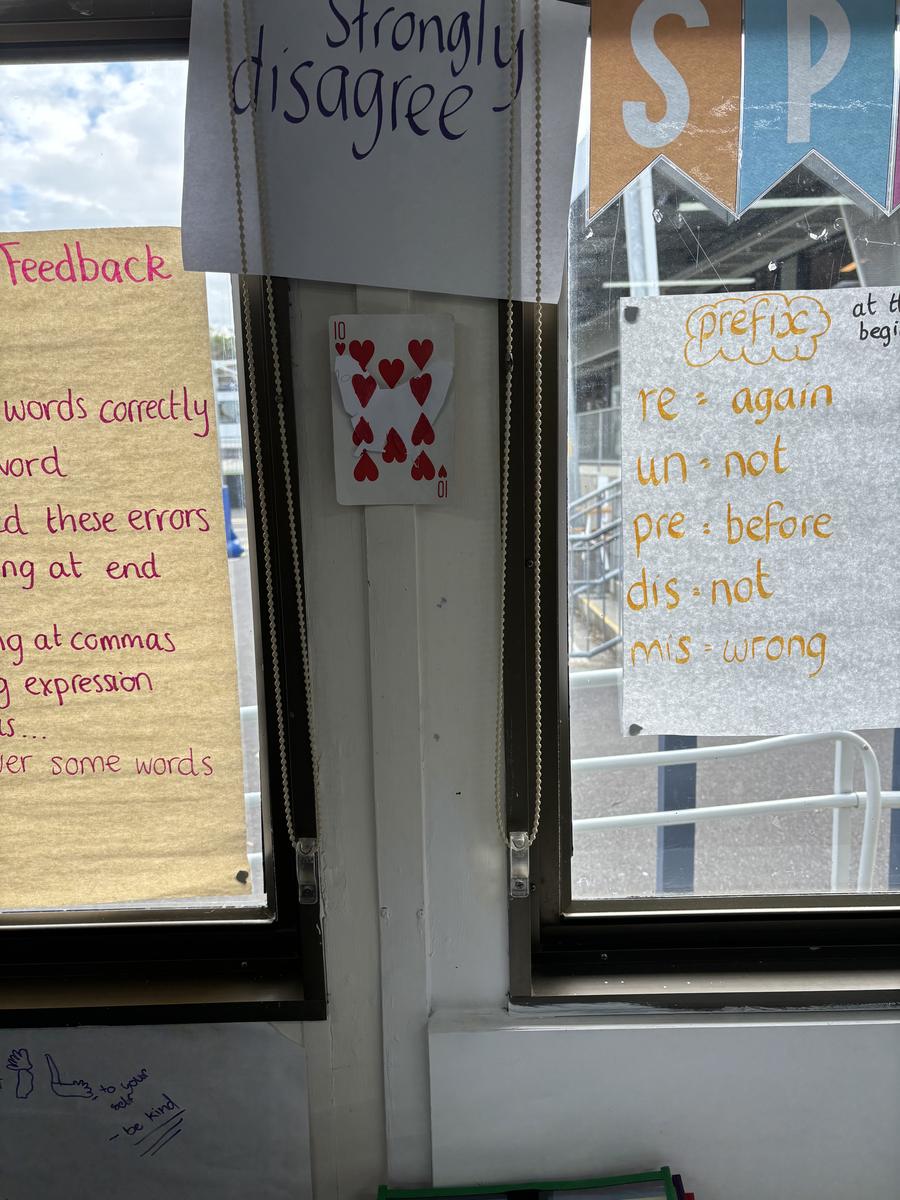 Strongly
disagree
S P
Feedback
words correctly
word
these errors
at end
at commas
expression
some words
10
10
prefix
at
re = again
un = not
pre = before
dis = not
mis = wrong
- to your
self
- be kind